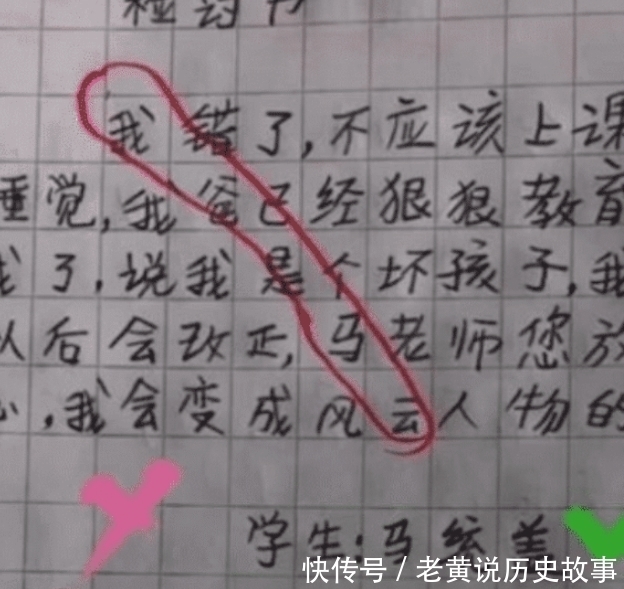 检讨书
我错了,不应该上课
睡觉,我爸已经狠狠教育
我了,说我是个坏孩子,我
以后会改正,马老师您放
心,我会变成风云人物的
学生:马
快传号/老黄说历史故事